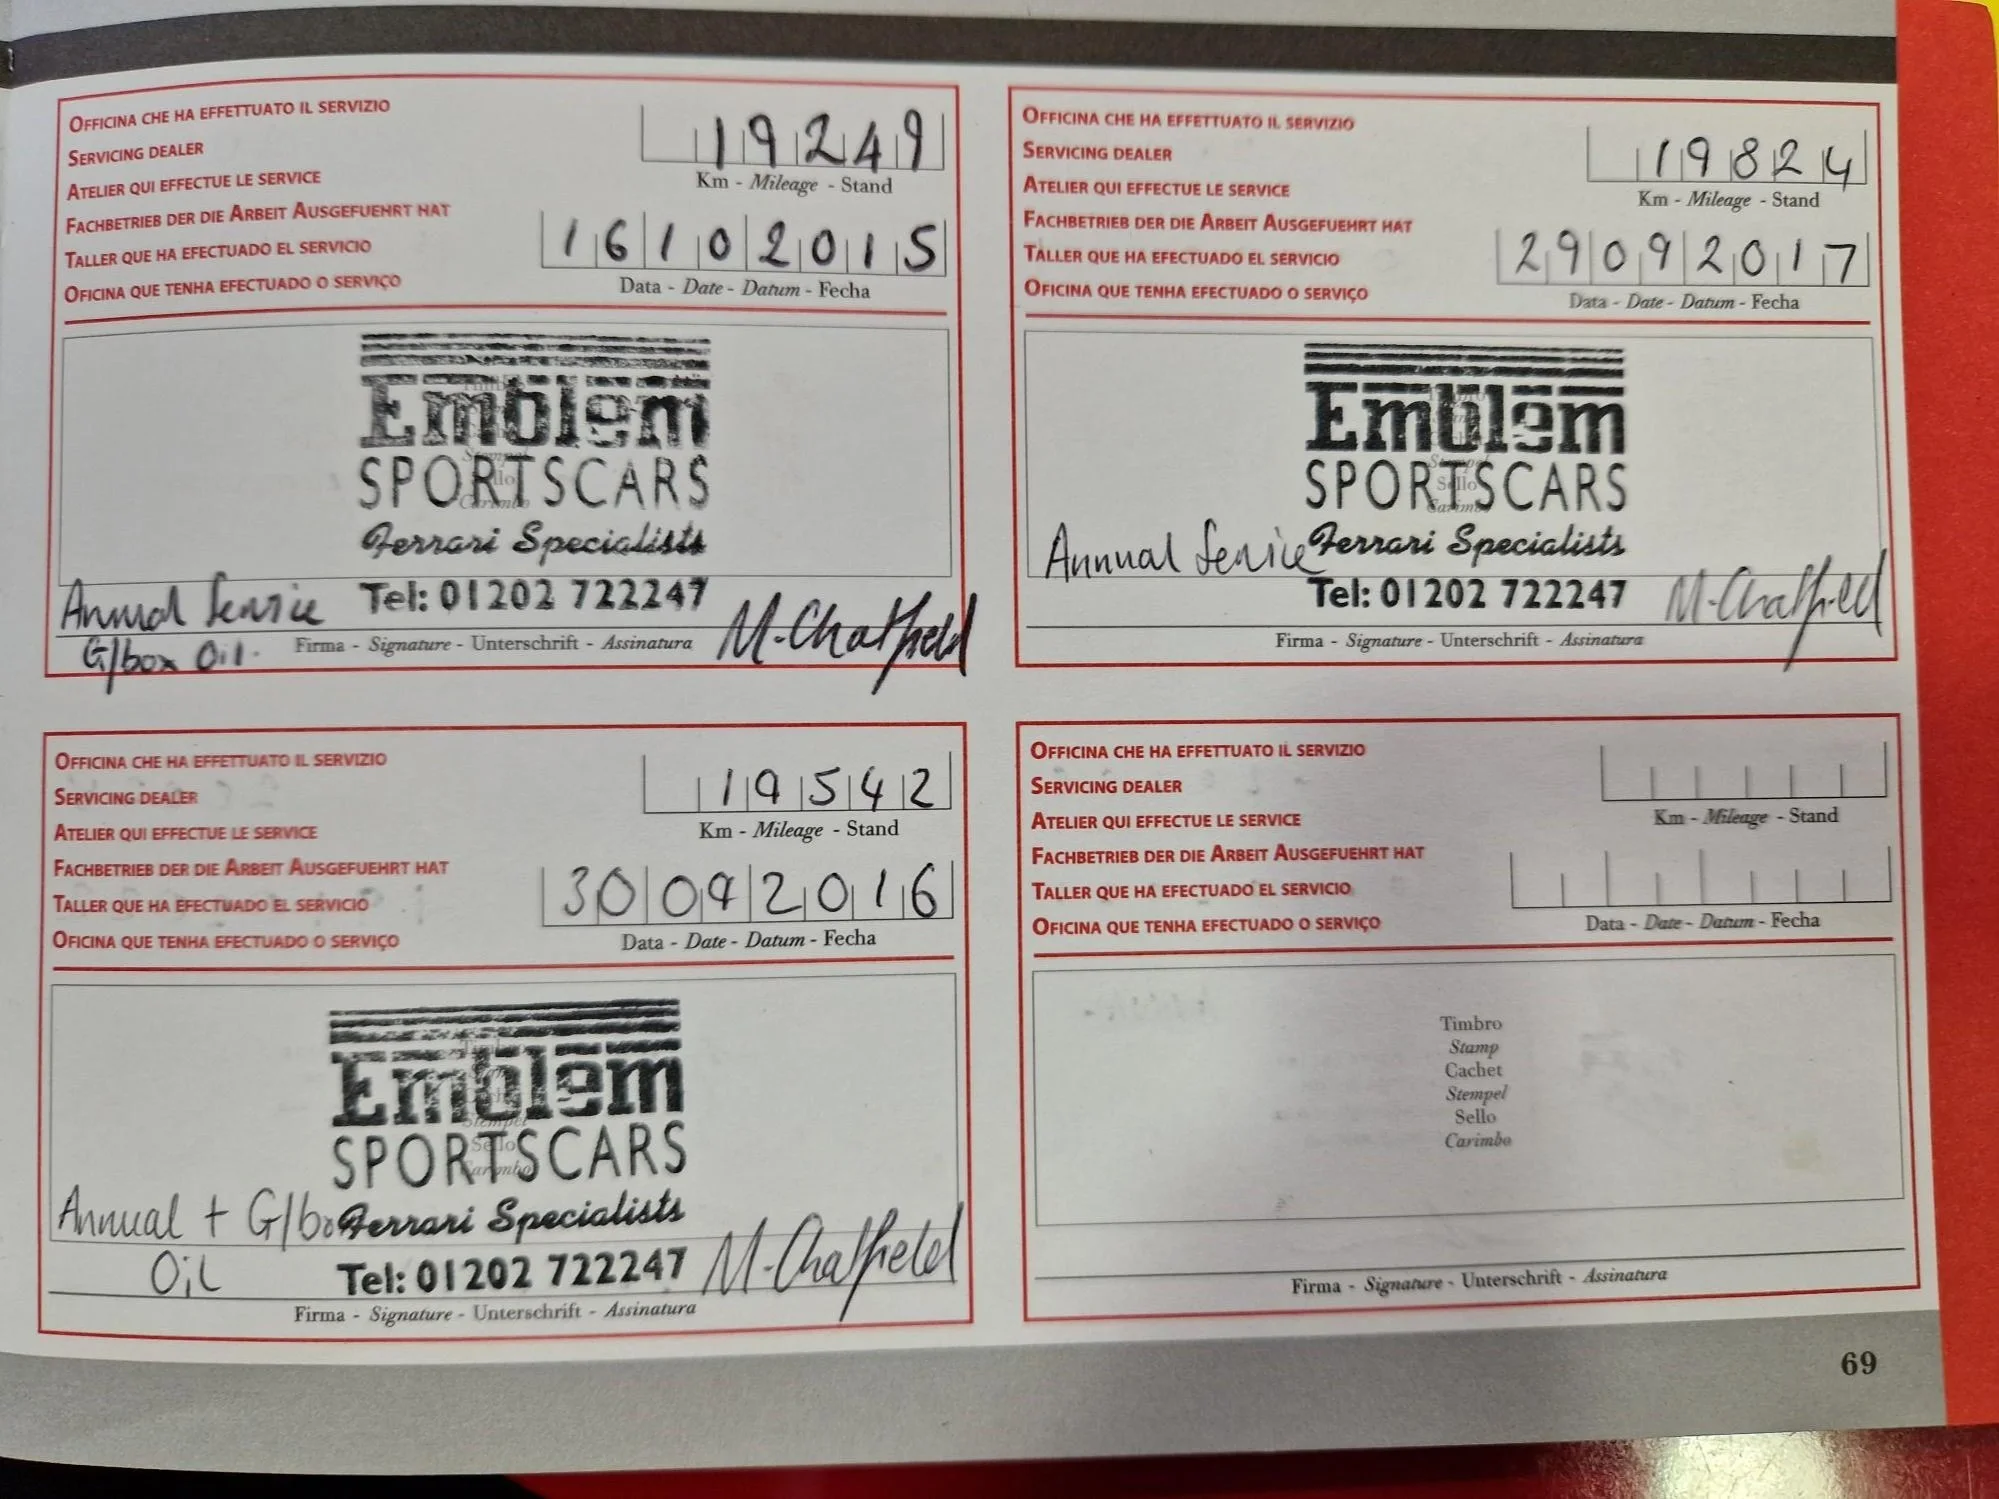 OFFICINA CHE HA EFFETTUATO IL SERVIZIO
SERVICING DEALER
ATELIER QUI EFFECTUE LE SERVICE
FACHBETRIEB DER DIE ARBEIT AUSGEFUEHRT HAT
TALLER QUE HA EFECTUADO EL SERVICIO
OFICINA QUE TENHA EFECTUADO O SERVIÇO
19249
Km - Mileage - Stand
16102015
Data - Date - Datum - Fecha
Emblem
SPORTSCARS
Ferrari Specialists
Tel: 01202 722247
Annual Service
G/box Oil.
M.Chatfield
Firma - Signature - Unterschrift - Assinatura
OFFICINA CHE HA EFFETTUATO IL SERVIZIO
SERVICING DEALER
ATELIER QUI EFFECTUE LE SERVICE
FACHBETRIEB DER DIE ARBEIT AUSGEFUEHRT HAT
TALLER QUE HA EFECTUADO EL SERVICIO
OFICINA QUE TENHA EFECTUADO O SERVIÇO
19824
Km - Mileage - Stand
29092017
Data - Date - Datum - Fecha
Emblem
SPORTSCARS
Ferrari Specialists
Tel: 01202 722247
Annual Service
M.Chatfield
Firma - Signature - Unterschrift - Assinatura
OFFICINA CHE HA EFFETTUATO IL SERVIZIO
SERVICING DEALER
ATELIER QUI EFFECTUE LE SERVICE
FACHBETRIEB DER DIE ARBEIT AUSGEFUEHRT HAT
TALLER QUE HA EFECTUADO EL SERVICIO
OFICINA QUE TENHA EFECTUADO O SERVIÇO
19542
Km - Mileage - Stand
30092016
Data - Date - Datum - Fecha
Emblem
SPORTSCARS
Ferrari Specialists
Tel: 01202 722247
Annual + G/bo
Oil
M.Chatfield
Firma - Signature - Unterschrift - Assinatura
OFFICINA CHE HA EFFETTUATO IL SERVIZIO
SERVICING DEALER
ATELIER QUI EFFECTUE LE SERVICE
FACHBETRIEB DER DIE ARBEIT AUSGEFUEHRT HAT
TALLER QUE HA EFECTUADO EL SERVICIO
OFICINA QUE TENHA EFECTUADO O SERVIÇO
Km - Mileage - Stand
Data - Date - Datum - Fecha
Timbro
Stamp
Cachet
Stempel
Sello
Carimbo
Firma - Signature - Unterschrift - Assinatura
69